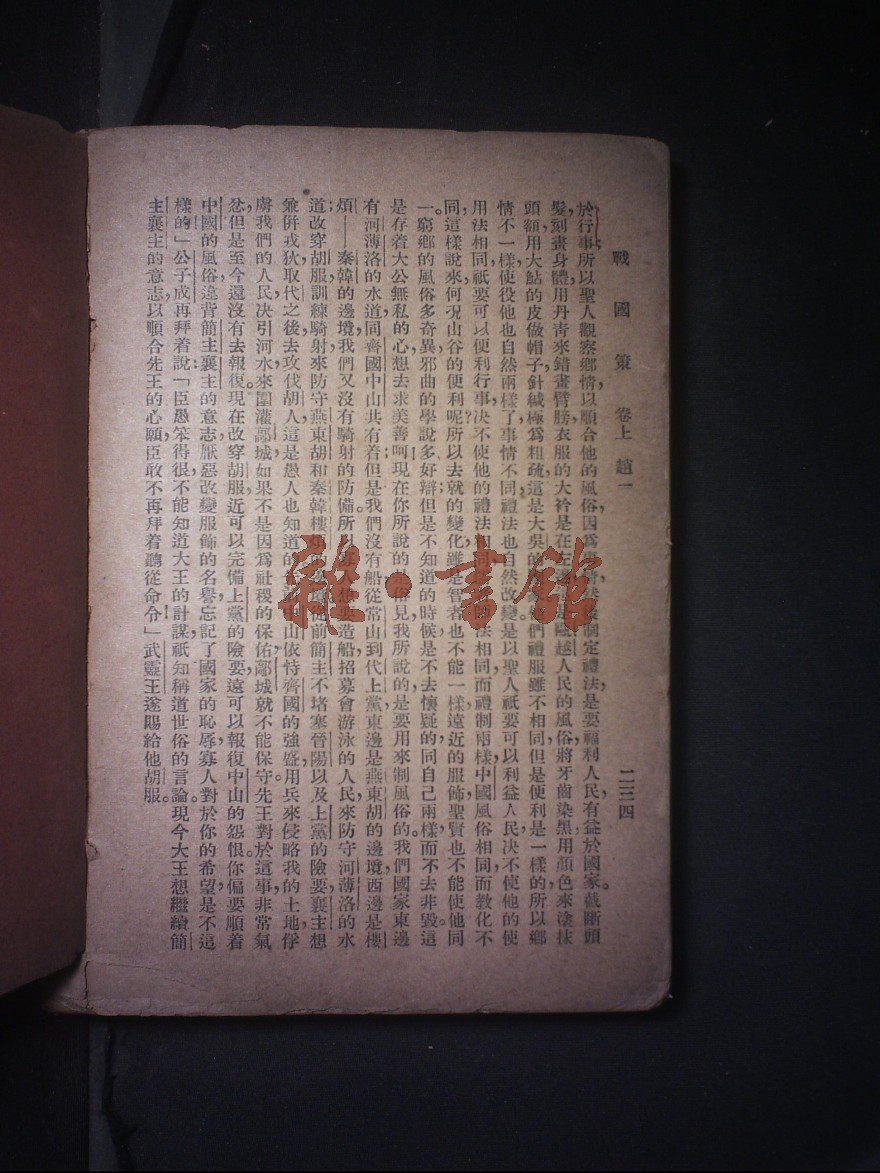 戰國策 卷上 趙一 二三四
於行事所以聖人觀察鄉情，以順合他的風俗，因爲 制定禮法，是要福利人民，有益於國家。截斷頭
髮，刻畫身體，用丹青來錯畫臂膀，衣服的大衿是在左 是甌越人民的風俗，將牙齒染黑，用顏色來塗抹
頭額，用大鮎的皮做帽子，針緘極爲粗疏，這是大吳的 們禮服雖不相同，但是便利是一樣的，所以鄉
情不一樣，使役他也自然兩樣了，事情不同，禮法也自然改變。是以聖人祇要可以利益人民，决不使他的使
用法相同，祇要可以便利行事，决不使他的禮法相同 法相同，而禮制兩樣，中國風俗相同，而敎化不
同，這樣說來，何况山谷的便利呢？所以去就的變化，雖是智者也不能一樣，遠近的服飾，聖賢也不能使他同
一。窮鄉的風俗多奇異，邪曲的學說多好辯，但是不知道的時候，是不去懷疑的，同自己兩樣，而不去非毀。這
是存着大公無私的心，想去求美善呵！現在你所說的是俗見，我所說的，是要用來制風俗的。我們國家東邊
有河薄洛的水道，同齊國中山共有着；但是我們沒有船，從常山到代上黨，東邊是燕東胡的邊境，西邊是樓
煩——秦韓的邊境，我們又沒有騎射的防備。所以 人想要造船，招募會游泳的人民，來防守河薄洛的水
道；改穿胡服，訓練騎射，來防守燕東胡和秦韓樓煩的邊境。從前簡主不堵塞晉陽以及上黨的險要，襄主想
兼併戎狄，取代之後，去攻伐胡人，這是愚人也知道的。 中山依恃齊國的強盛，用兵來侵略我的土地，俘
虜我們的人民，决引河水，來圍灌鄗城，如果不是因爲社稷的保佑，鄗城就不能保守。先王對於這事，非常氣
忿，但是至今還沒有去報復。現在改穿胡服，近可以完備上黨的險要，遠可以報復中山的怨恨。你偏要順着
中國的風俗，違背簡主襄主的意志，厭惡改變服飾的名譽，忘記了國家的恥辱，寡人對於你的希望，是不這
樣的。」公子成再拜着說：「臣愚笨得很，不能知道大王的計謀，祇知稱道世俗的言論。現今大王想繼續簡
主襄主的意志，以順合先王的心願，臣敢不再拜着聽從命令」武靈王遂賜給他胡服。
雅·書館